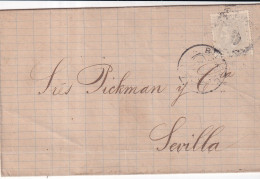 Sres Pickman y Cia
Sevilla